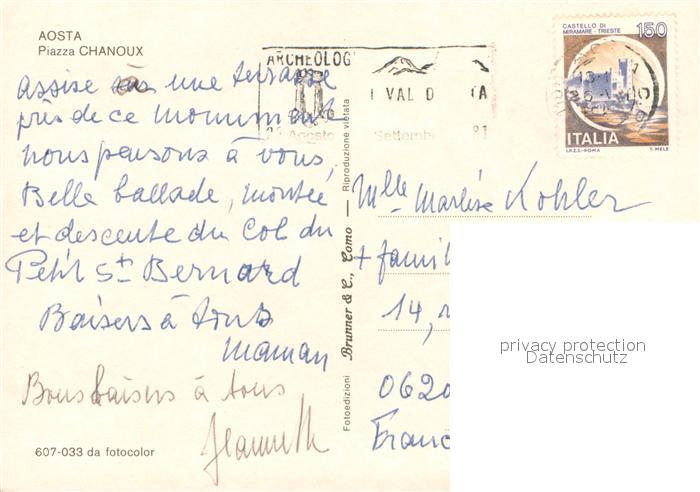 AOSTA
Piazza CHANOUX
Assise une terrasse
près de ce monument
nous pensons à vous,
Belle ballade, montée
et descente du Col du
Petit St Bernard
Baisers à tous
Maman
Bons baisers à tous
Jeannette
607-033 da fotocolor
Fotoedizioni Brunner & C., Como — Riproduzione vietata
CASTELLO DI
MIRAMARE - TRIESTE
150
ITALIA
I.P.Z.S.-ROMA T. MELE
ARCHEOLOG
VAL D
Agosto Settemb 81
Mlle Marlise Kohler
+ famil
14,
0620
Franc
privacy protection
Datenschutz